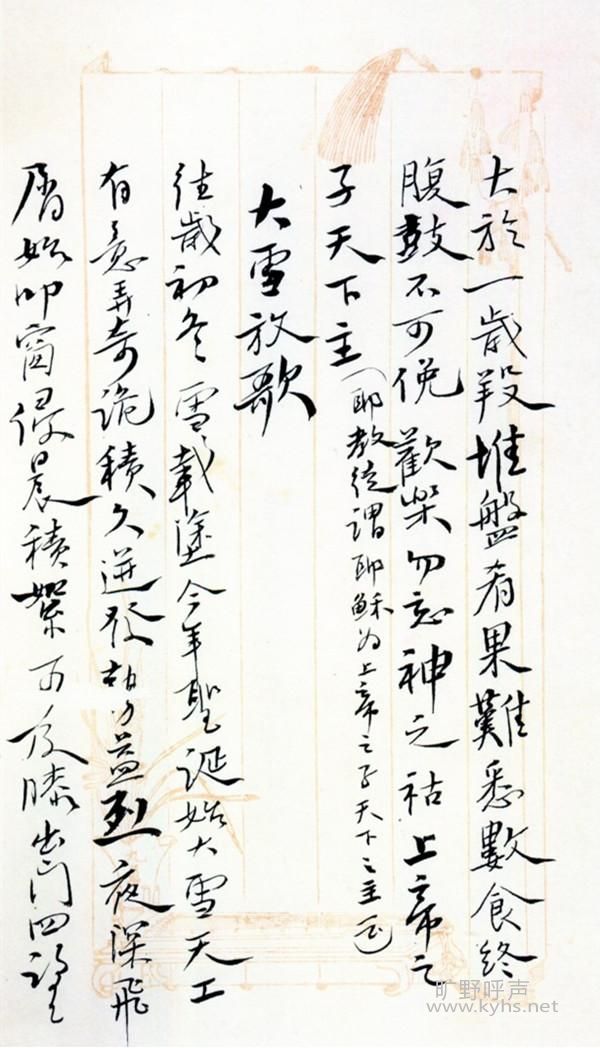 大於一歲羖堆盤肴果難悉數食終
腹鼓不可俛歡樂勿忘神之祜上帝之
子天下主(耶教徒謂耶穌為上帝之子天下之主也)
大雪放歌
往歲初冬雪載塗今年聖誕始大雪天工
有意弄奇詭積久迸發勢益烈夜深飛
屑始叩窗侵晨積絮可及膝出門四望
旷野呼声
www.kyhs.net